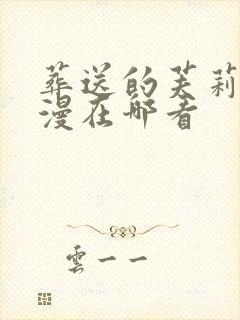 葬送的芙莉
漫在哪看
雲一一